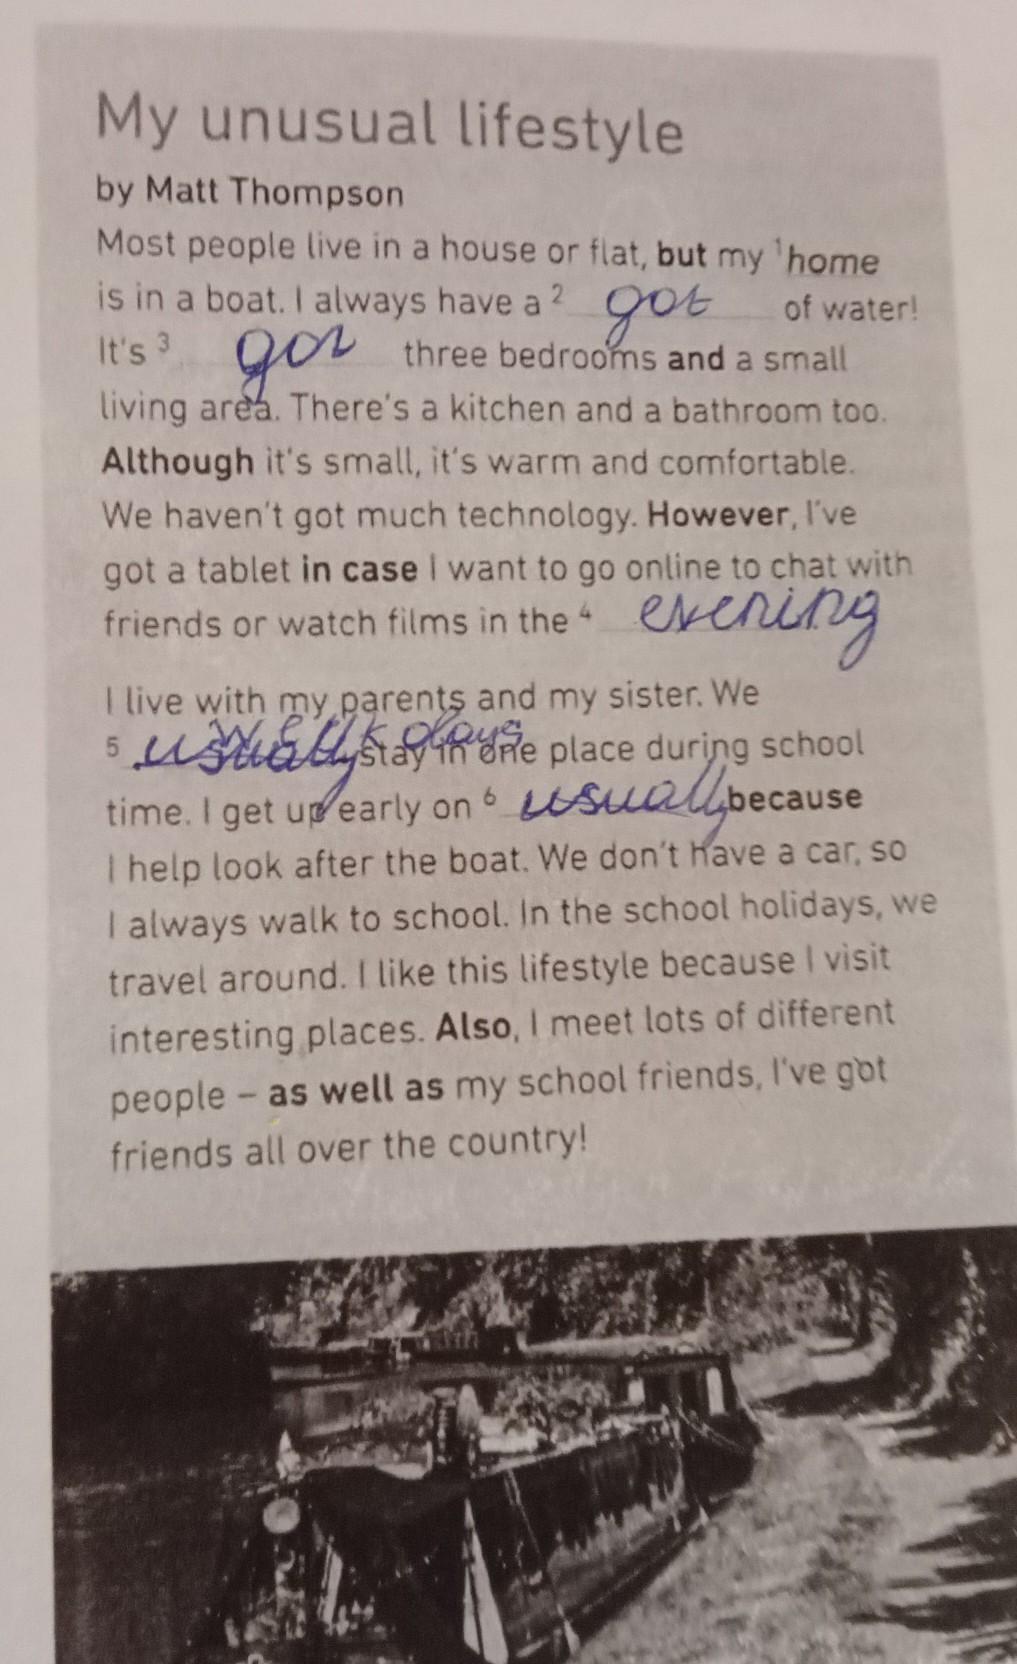 My unusual lifestyle
by Matt Thompson
Most people live in a house or flat, but my ¹home
is in a boat. I always have a ² got of water!
It's ³ got three bedrooms and a small
living area. There's a kitchen and a bathroom too.
Although it's small, it's warm and comfortable.
We haven't got much technology. However, I've
got a tablet in case I want to go online to chat with
friends or watch films in the ⁴ evening
I live with my parents and my sister. We
⁵ usually stay in one place during school
time. I get up early on ⁶ usually because
I help look after the boat. We don't have a car, so
I always walk to school. In the school holidays, we
travel around. I like this lifestyle because I visit
interesting places. Also, I meet lots of different
people – as well as my school friends, I've got
friends all over the country!